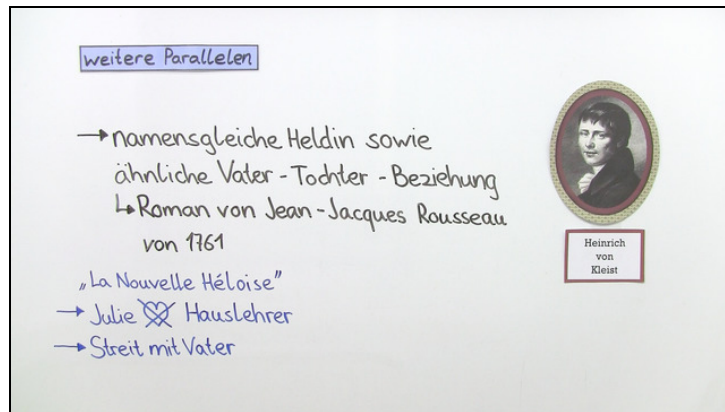 weitere Parallelen
→ namensgleiche Heldin sowie
ähnliche Vater-Tochter-Beziehung
↳ Roman von Jean-Jacques Rousseau
von 1761
„La Nouvelle Héloise"
→ Julie Hauslehrer
→ Streit mit Vater
Heinrich
von
Kleist